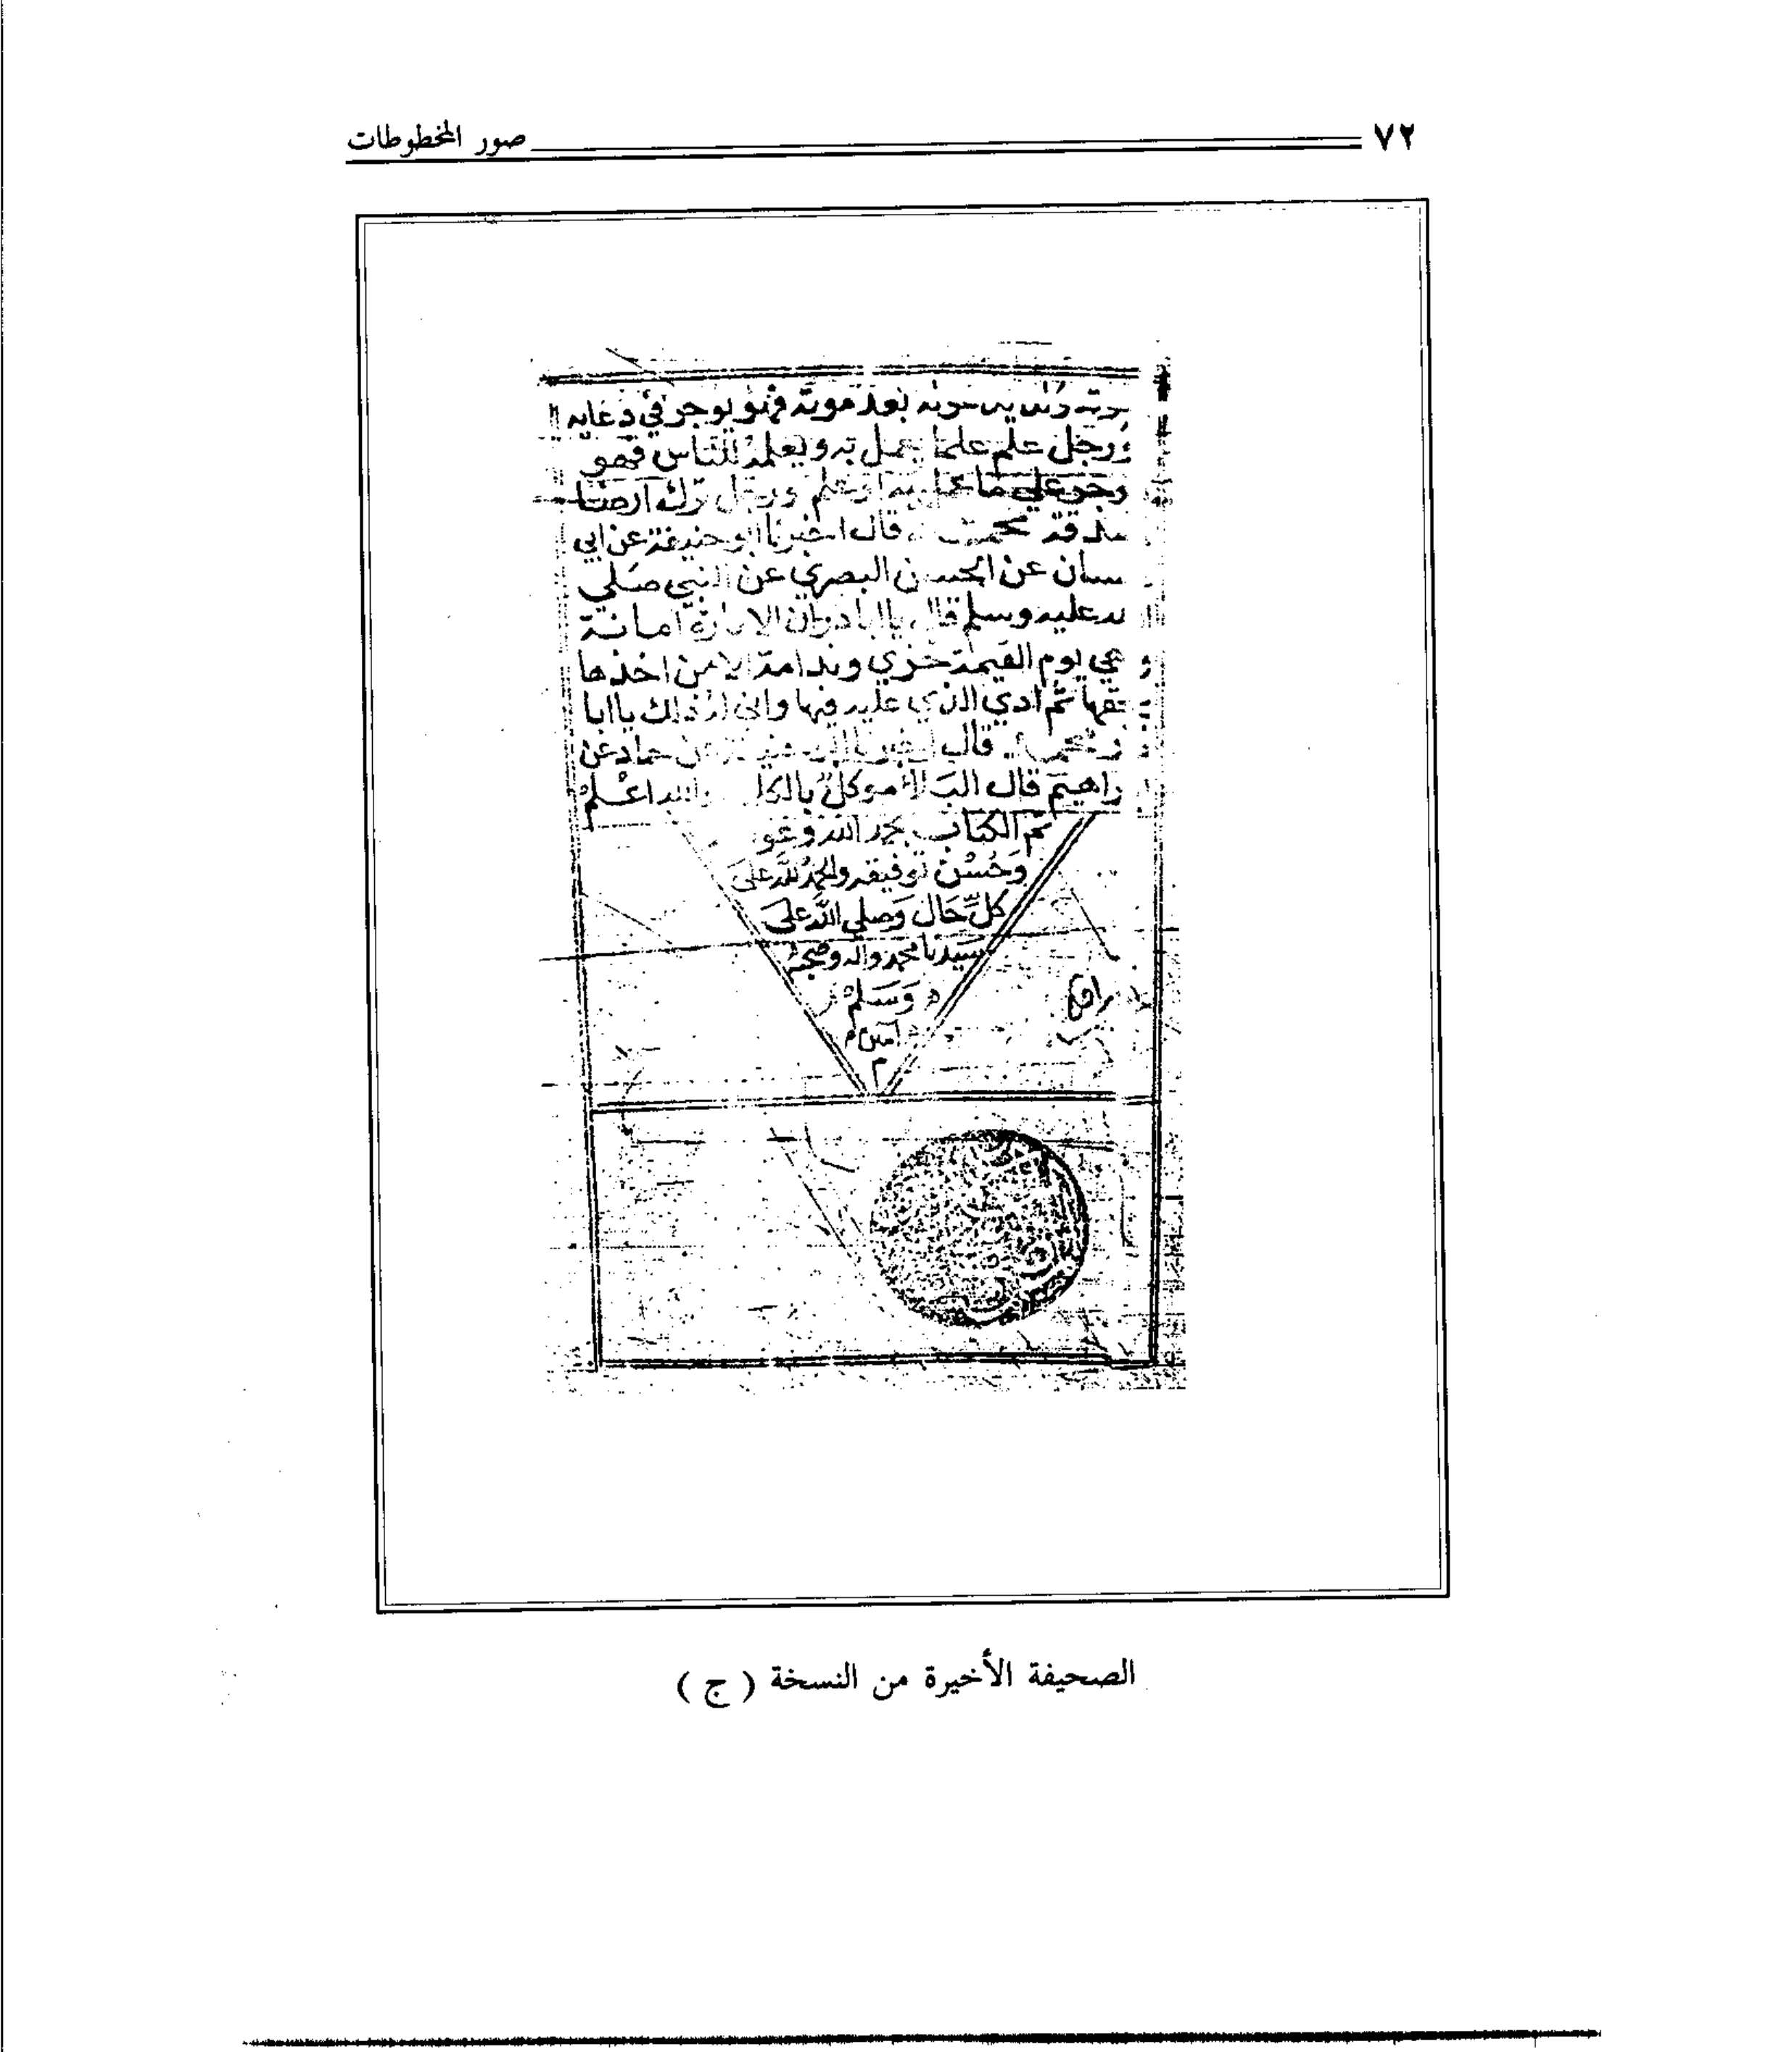 ٧٢ صور المخطوطات
بعد موته فهو يوجر في دعايه
ورجل علم علما يعمل به ويعلمه للناس فهو
وجر على ما ورجل ترك ارضا
قال اخبرنا ابو حنيفة عن ابي
سان عن الحسن البصري عن النبي صلي
عليه وسلم قال يا ابا ذر ان الامارة امانة
وهي يوم القيمة خزي وندامة الا من اخذها
بحقها ثم ادي الذي عليه فيها واني له ذلك يا ابا
قال اخبرنا حماد عن
راهيم قال البلا موكل بالكلام والله اعلم
تم الكتاب بحمد الله وعو
وحسن توفيقه والحمد لله على
كل حال وصلي الله على
سيدنا محمد واله وصحبه
وسلم
آمين م
م
الصحيفة الأخيرة من النسخة ( ج )